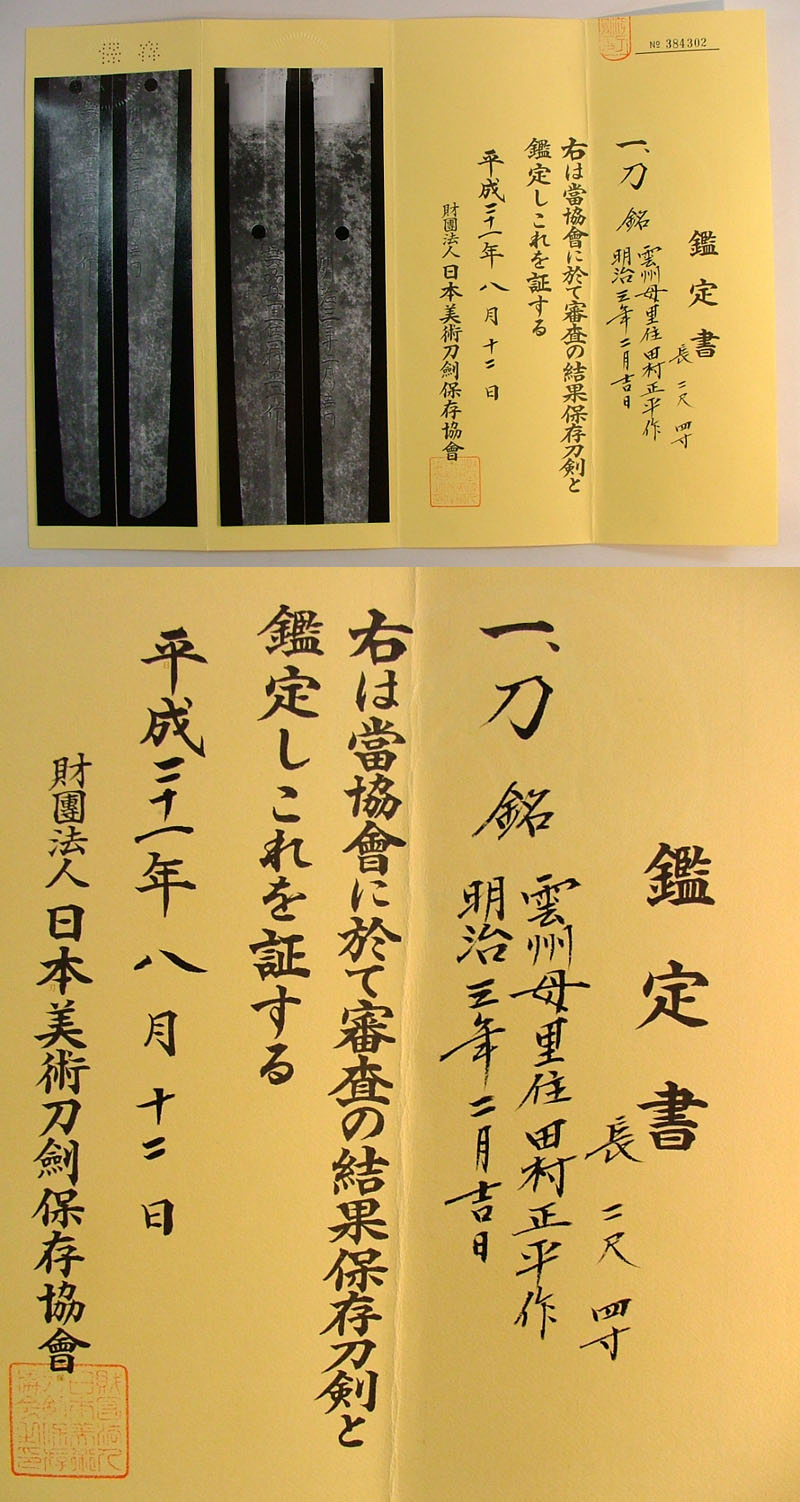 保存
№ 384302
鑑定書
長 二尺 四寸
一、刀 銘 雲州母里住田村正平作
明治三年二月吉日
右は當協會に於て審査の結果保存刀剣と
鑑定しこれを証する
平成二十一年 八月 十二日
財團法人 日本美術刀劍保存協會
鑑定書
長 二尺 四寸
一、刀 銘 雲州母里住田村正平作
明治三年二月吉日
右は當協會に於て審査の結果保存刀剣と
鑑定しこれを証する
平成二十一年 八月 十二日
財團法人 日本美術刀劍保存協會